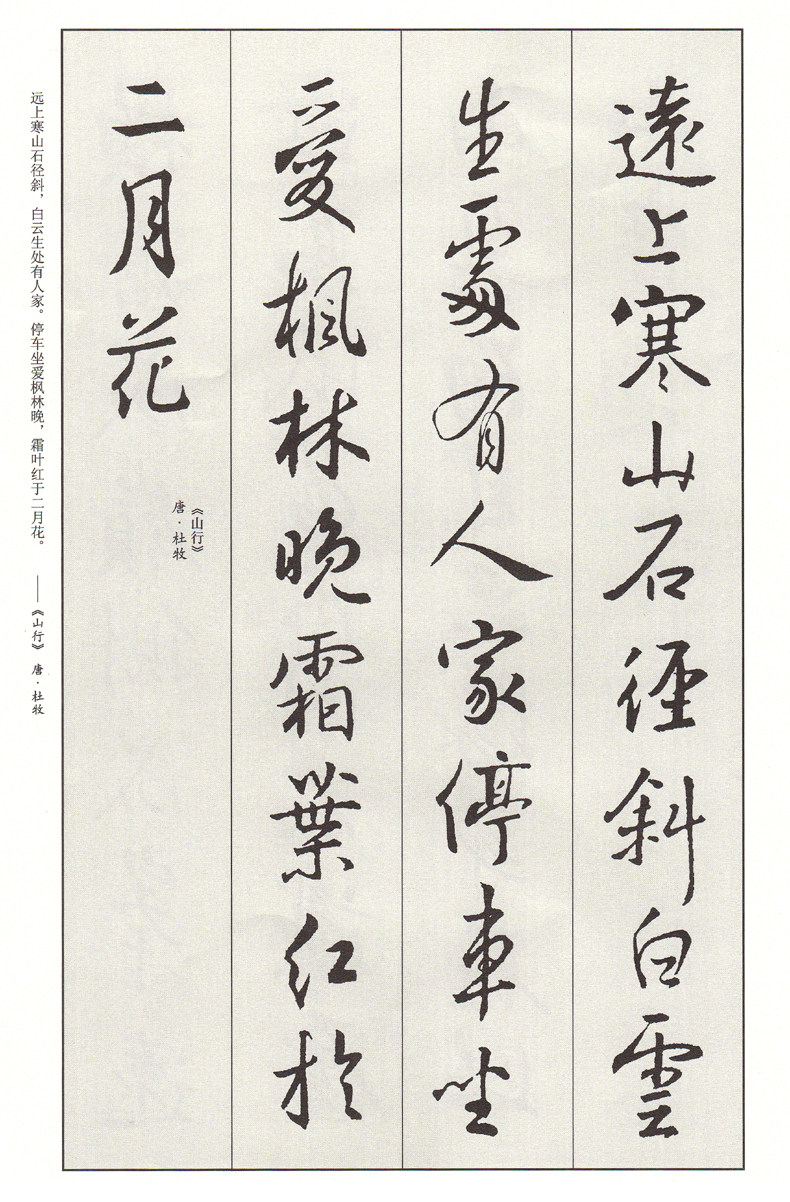 遠上寒山石徑斜白雲
生處有人家停車坐
愛楓林晚霜葉紅於
二月花
《山行》
唐·杜牧
远上寒山石径斜，白云生处有人家。停车坐爱枫林晚，霜叶红于二月花。 ——《山行》 唐·杜牧